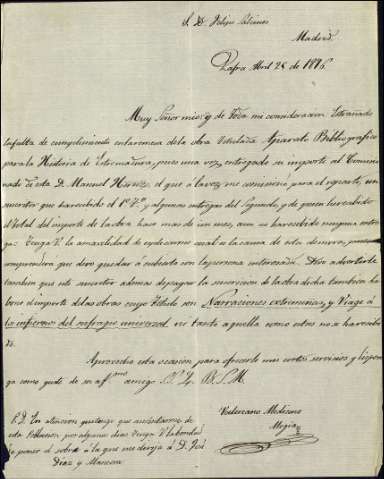 S. D. Felipe
Madrid.
Zafra Abril 28 de 1876
Muy Señor mio y de toda mi consideracion: Estrañado
la falta de cumplimiento de la obra titulada Aparato Bibliografico
para la Historia de Estremadura, pues una vez entregado su importe al
de esta D. Manuel el que á la vez me para el reparto, un
suscritor que ha recibido el 1er Tº y algunas entregas del Segundo, y de quien he recibido
el total del importe de la obra hace mas de un mes, aun no he recibido ninguna entre-
ga: Tenga V. la amabilidad de esplicarme cual es la causa de esta demora, pues
comprenderá que devo quedar á cubierto con la persona interesada. Devo advertirle
tambien que este suscritor ademas de pagar la suscricion de la obra dicha tambien ha
bono el importe de las obras cuyo titulo son Narraciones estremeñas, y Viage á
los infiernos del sufragio universal, no tanto aquella como estos no ha recibi-
do.
Aprovecho esta ocasion para ofrecerle mis cortos servicios y
ga como guste de su afmo amigo S. S. Q. B. S. M.
Valeriano Medrano
Megia
P.D. En atencion que tengo que ausentarme de
esta Poblacion por algunos dias tenga V. la bondad
de poner el sobre á la que me dirija á D. José
Diaz y